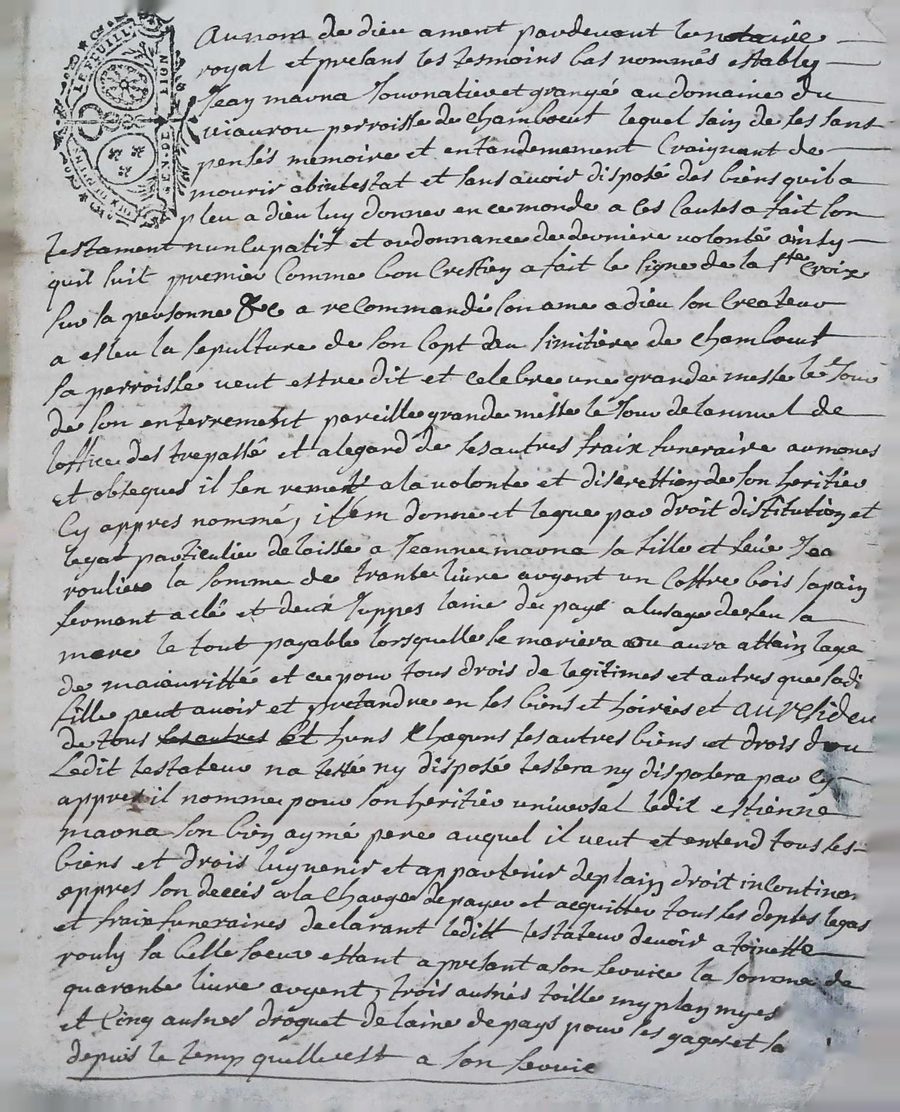 LE FEUILL
GEN. DE LION
Au nom de dieu ament pardevant le notaire
royal et presans les tesmoins bas nommés estably
Jean maona Journatier et grangé au domaine du
viaurou perroisse de chambout lequel sain de ses sans
pensés memoire et entandemement Craignant de
mourir abintestat et sans avoir disposé des biens quil a
pleu a dieu luy donner en ce monde a ces Causes a fait son
testament nuncupatif et ordonnance de derniere volonté ainsy
quil suit premier Comme bon Crestien a fait le signe de la ste Croix
sur sa personne &c a recommandé son ame a dieu son Createur
a esleu la sepulture de son Copt au simitiere de chambout
sa perroisse veut estre dit et celebre une grande messe le Jour
de son enterrement pareille grande messe le Jour de lannuel de
loffice des trepassé et alegard de ses autres fraix funeraire aumones
et obseques il sen remest a la volonte et discrettion de son heritier
Cy appres nommé, item donne et legue par droit distitution et
legat particulier delaisse a Jeanne maona sa fille et feue Jea
rouliere la somme de trante livre argent un Coffre bois sapain
fermant a clé et deux Juppes laine du pays a lusage de feu sa
mere le tout payable lorsquelle se mariera ou aura attain lage
de maiauritté et ce pour tous drois de legitimes et autres que sadi
fille peut avoir et pretandre en ses biens et hoiries et au resideu
de tous ses autres Et huns Chaquns ses autres biens et drois dou
Ledit testateur na testé ny disposé testera ny disposera par Cy
appres il nomme pour son heritier universel ledit estienne
maona son bien aymé pere auquel il veut et entend tous ses
biens et drois luy venir et appartenir de plain droit incontinan
appres son deceis a la Charge de payer et acquitter tous ses deptes legas
et fraix funeraires declarant leditt testateur devoir a toinette
rouly sa belle soeur estant a presant a son service la somme de
quarante livre argent, trois ausnés toille my plan
et Cinq ausnes droguet de laine de pays pour ses gages et sa
depuis le temp quelle est a son servie